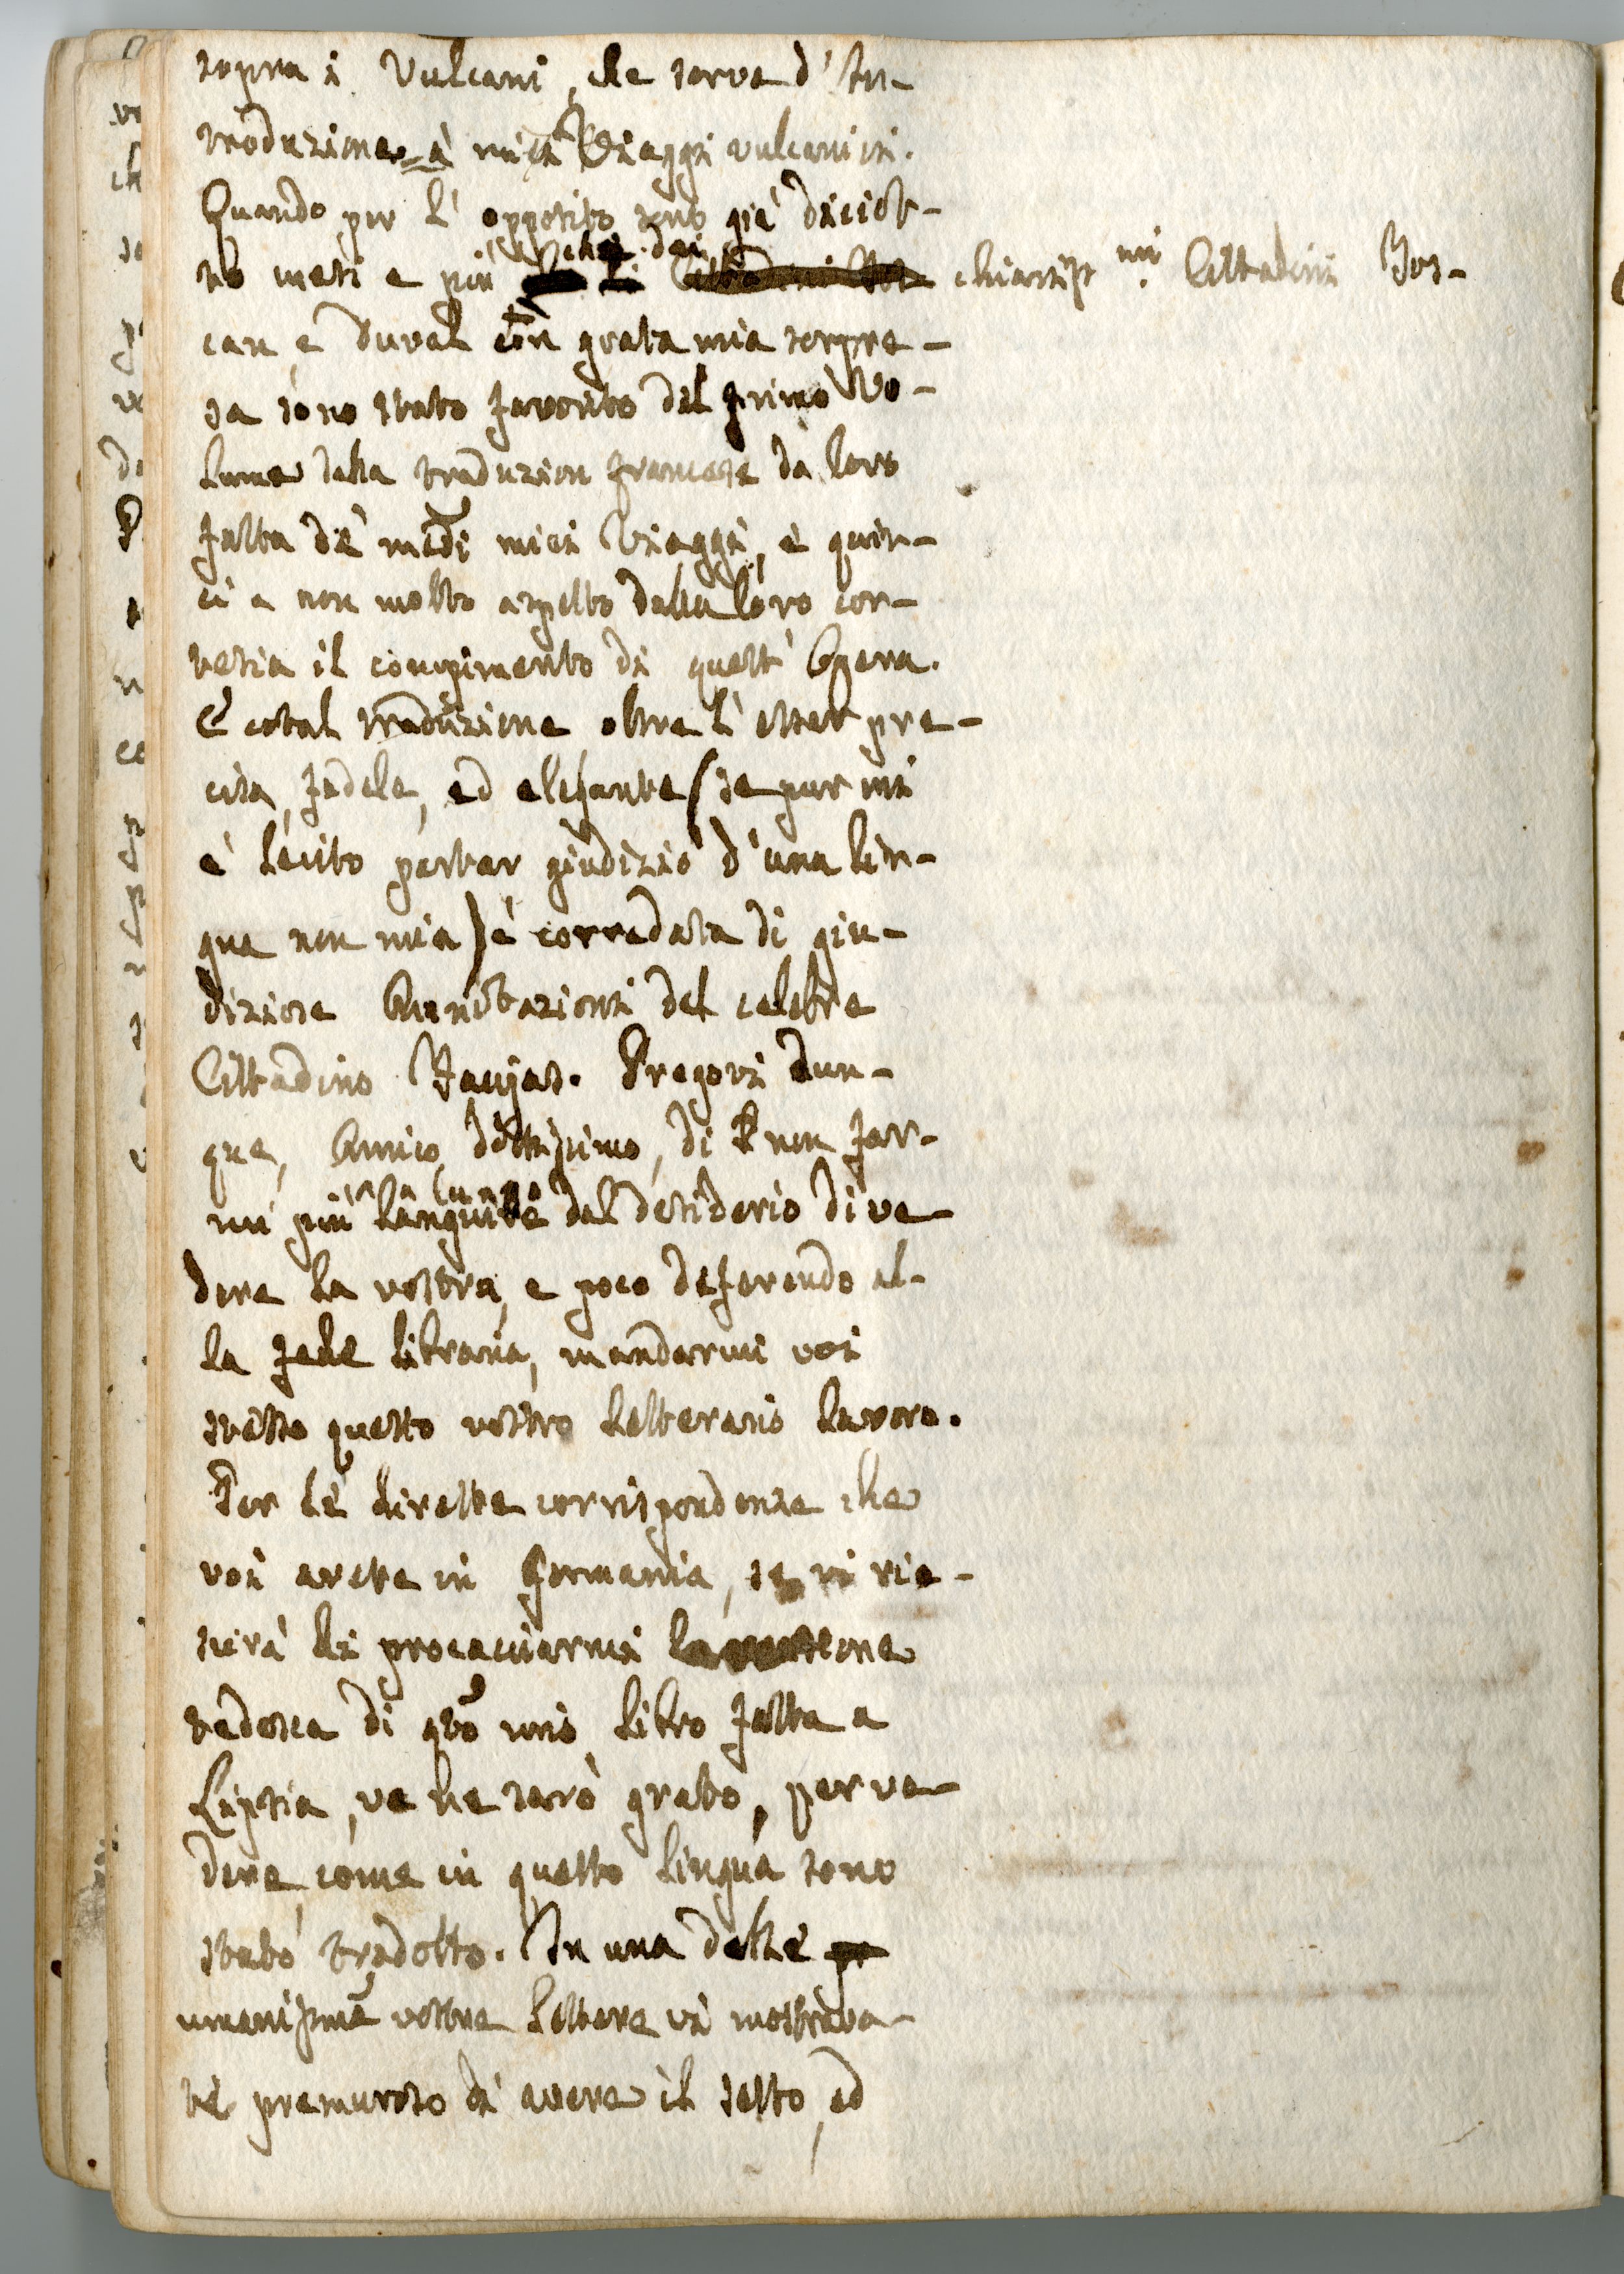 sopra i Vulcani, che serve d'In-
troduzione a' miei Viaggi vulcanici.
Quando per l'opposito sono già diciot-
to mesi e più che dai chiariss.mi Cittadini Tos-
can, e Duval con grata mia sorpre-
sa sono stato favorito del primo Vo-
lume della traduzion francese da loro
fatta de' med.i miei Viaggi, e quin-
ci a non molto aspetto dalla loro cor-
tesia il compimento di quest'Opera.
E cotal traduzione oltre l'esser pre-
cisa, fedele, ed elegante (se pur mi
è lecito portar giudizio d'una lin-
gua non mia) è corredata di giu-
diziose Annotazioni del celebre
Cittadino Faujas. Pregovi dun-
que, Amico dottissimo, di non far-
mi più a lungo languire dal desiderio di ve-
dere la vostra, e poco deferendo al-
la fede libraria, mandarmi voi
stesso questo vostro letterario lavoro.
Per le dirette corrispondenze che
voi avete in Germania, se vi rie-
scirà di procacciarmi la versione
tedesca di q.to mio libro fatta a
Lipsia, ve ne sarò grato, per ve-
dere come in questa lingua sono
stato tradotto. In una delle
umaniss.me vostre lettere vi mostrava-
te premuroso di avere il sesto, ed